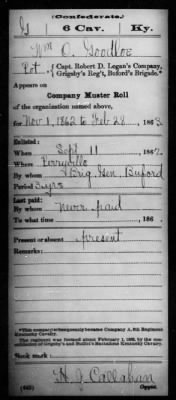 (Confederate.)
G 6 Cav. Ky.
Wm O. Goodloe
Pvt., Capt. Robert D. Logan's Company,
Grigsby's Reg't, Buford's Brigade.*
Appears on
Company Muster Roll
of the organization named above,
for Nov 1, 1862 to Feb 28, 1863.
Enlisted:
When Sept 11, 1862.
Where Perryville
By whom Brig. Gen. Buford
Period 3 yrs
Last paid:
By whom never paid
To what time , 186 .
Present or absent present
Remarks:
*This company subsequently became Company A, 6th Regiment
Kentucky Cavalry.
The regiment was formed about February 1, 1863, by the consolidation
of Grigsby's and Butler's Battalions Kentucky Cavalry.
Book mark:
H. J. Callahan
(642) Copyist.